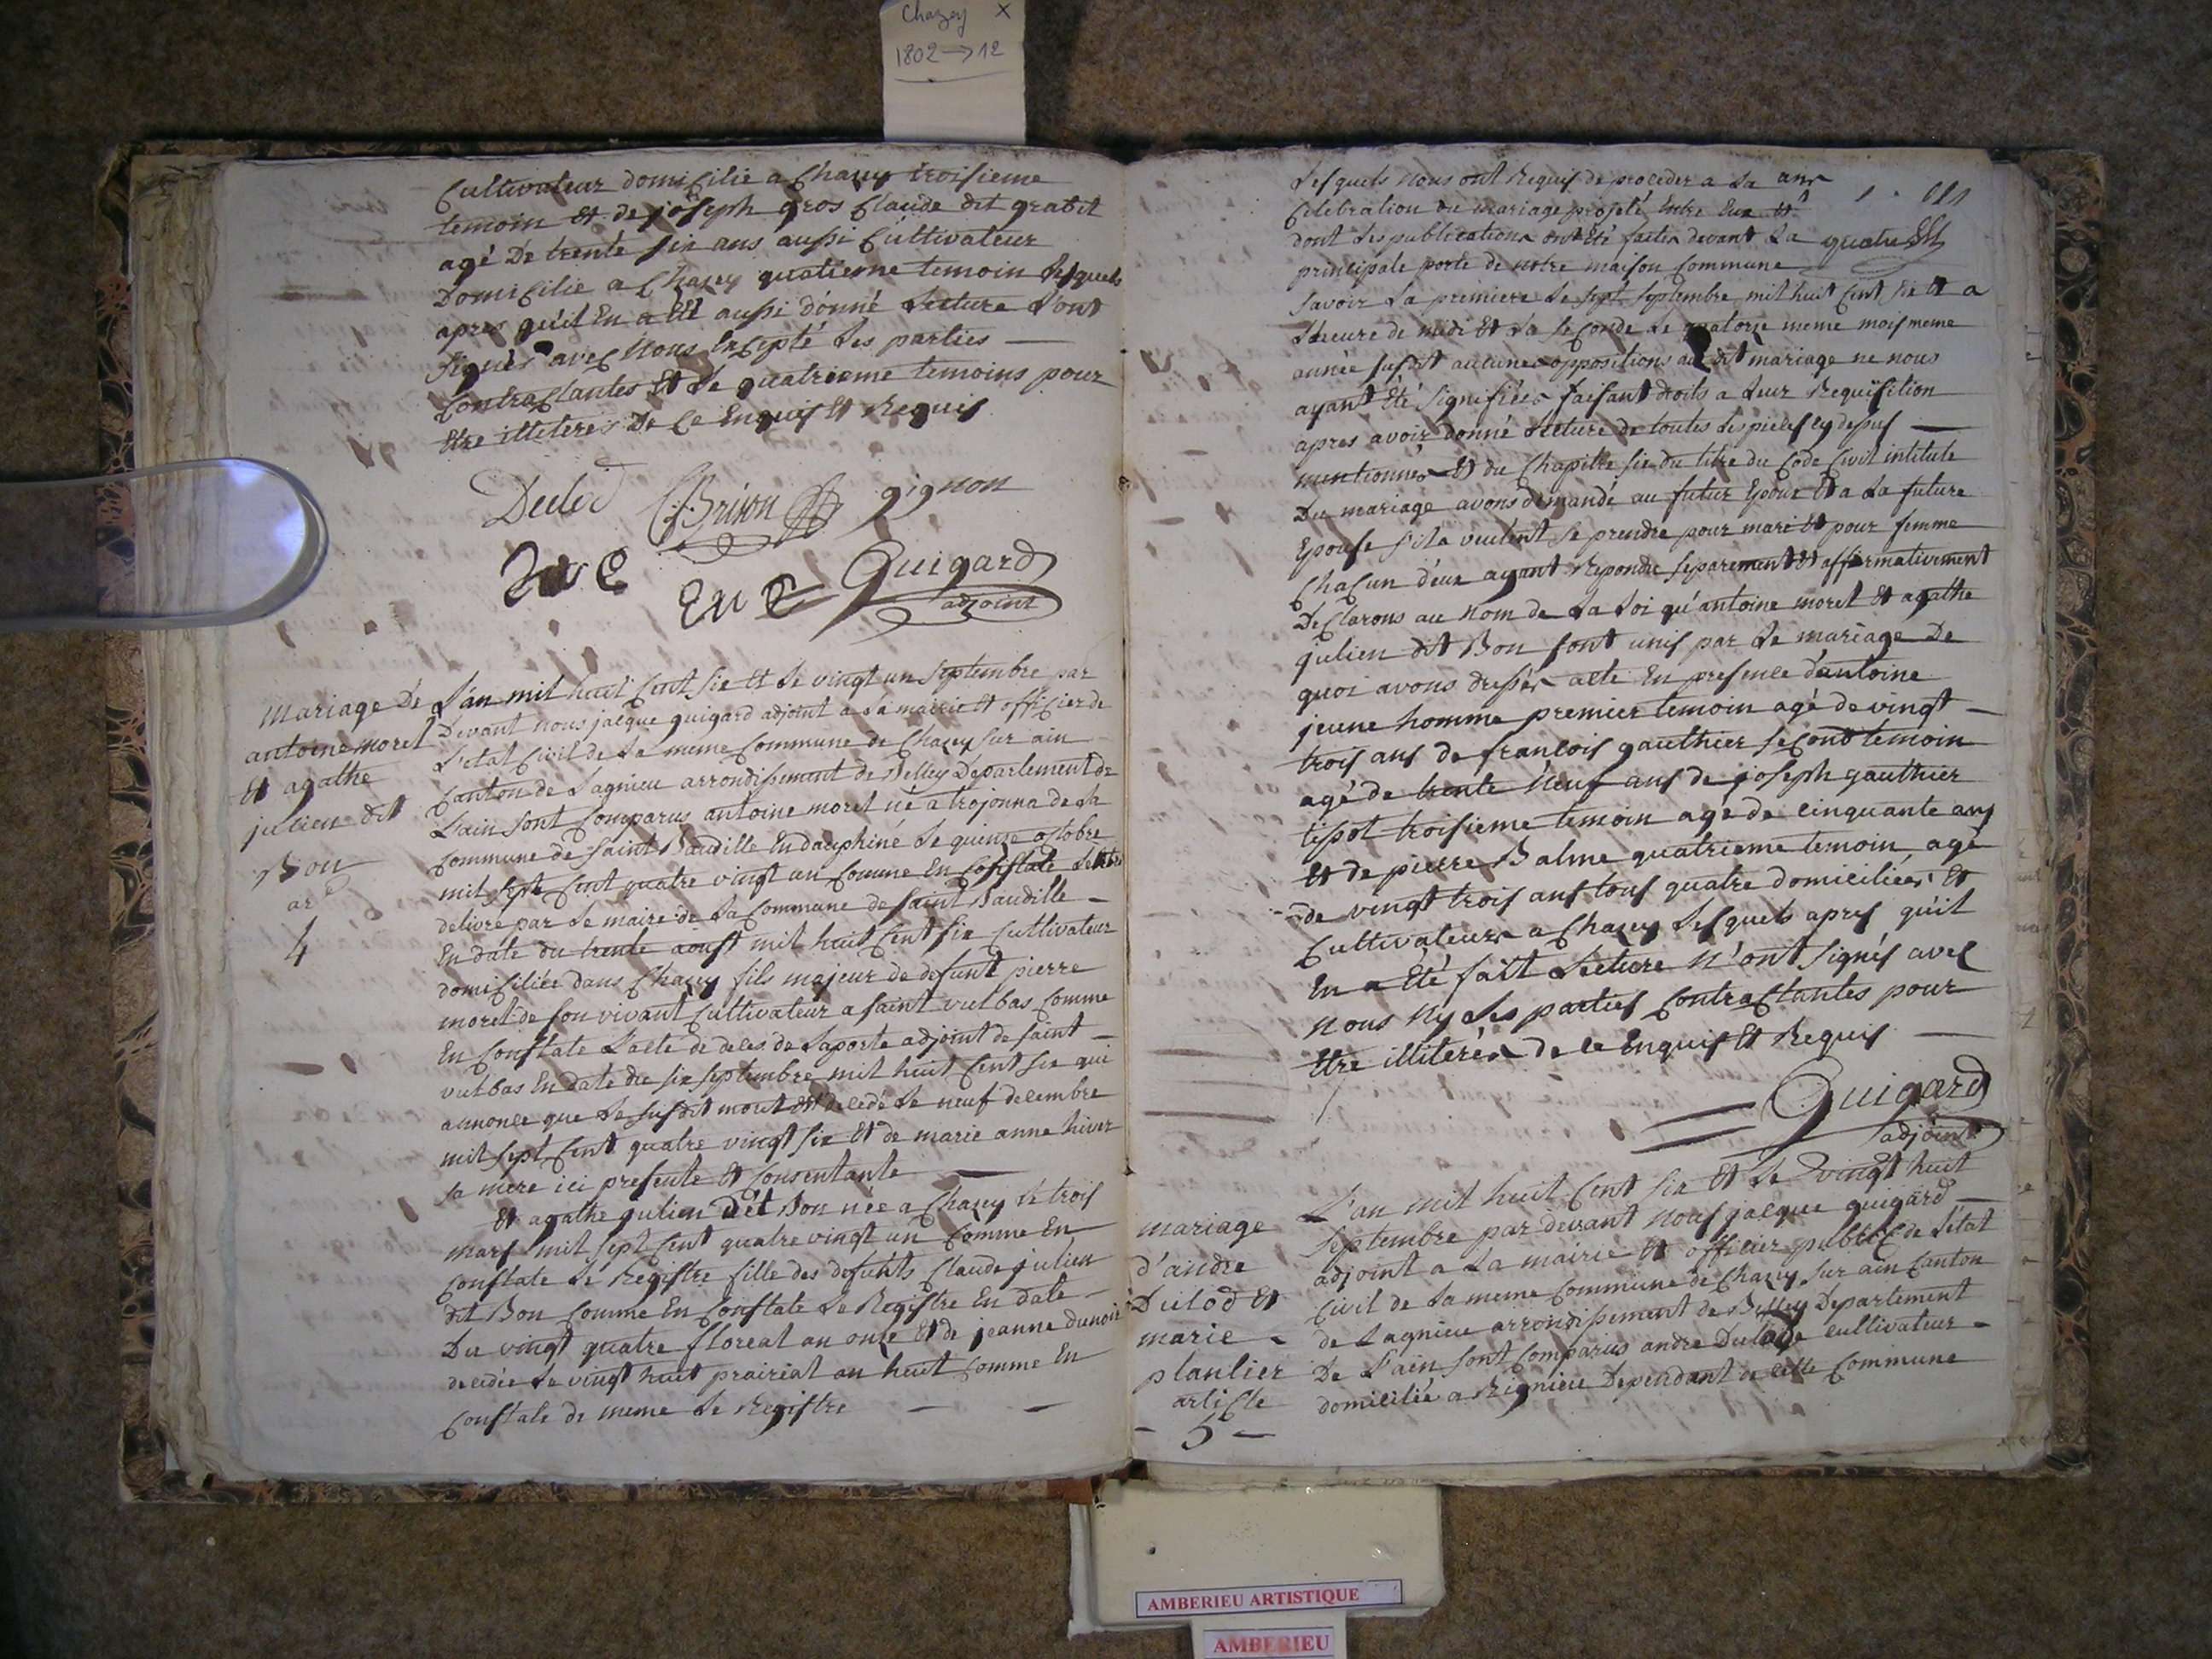 Chazey X
1802 → 12
Cultivateur domicilié a Chazey troisieme
temoin et de joseph gros Claude dit gratit
agé De trente six ans aussi Cultivateur
Domicilié a Chazey quatrieme temoin lesquels
apres qu'il En a Eté aussi donné Lecture L'ont
signés avec Nous Excepté Les parties —
Contractantes Et Le quatrieme temoins pour
Etre illiteres De Ce Enquis Et Requis
Brison gignon
Guigard
adjoint
mariage De
antoine moret
Et agathe
julien dit
Bon
ar
4
L'an mil huit Cent six et Le vingt un septembre par
Devant nous jacque guigard adjoint a La mairie et officier de
L'etat Civil de La meme Commune de Chazey sur ain
Canton de Lagnieu arrondissement de Belley Departement de
L'ain sont Comparus antoine moret né a trojonna de La
Commune de saint Baudille En dauphiné Le quinze octobre
mil sept Cent quatre vingt un Comme En Constate
delivré par Le maire de La Commune de saint Baudille —
En date du trente aoust mil huit Cent six Cultivateur
domiciliée dans Chazey fils majeur de defunt pierre
moret de son vivant Cultivateur a saint vulbas Comme
En Constate L'acte de deces de Laporte adjoint de saint —
vulbas En date du six septembre mil huit Cent six qui
annonce que Le susdit moret est decedé Le neuf decembre
mil sept Cent quatre vingt six Et de marie anne hiver
sa mere ici presente Et Consentante —
Et agathe julien dit Bon née a Chazey Le trois
mars mil sept Cent quatre vingt un Comme En
Constate Le Registre fille des defunts Claude julien
dit Bon Comme En Constate Le Registre En date —
Du vingt quatre floreal an onze Et de jeanne dunoir
decedée Le vingt huit prairial an huit Comme En
Constate de meme Le Registre — —
Lesquels Nous ont Requis de proceder a La
Celebration du mariage projeté Entre Eux et
dont Les publications ont Eté faites devant La quatre
principale porte de notre maison Commune
savoir La premiere Le sept septembre mil huit Cent six Et a
L'heure de midi Et La seconde Le quatorze meme mois meme
année susdit aucunes oppositions au dit mariage ne nous
ayant Eté signifiées faisant droits a Leur Requisition
apres avoir donné Lecture de toutes Les pieces cy dessus —
mentionnés Et du Chapitre six du titre du Code Civil intitulé
Du mariage avons demandé au futur Epoux Et a La future
Epouse s'ils veulent se prendre pour mari Et pour femme
Chacun d'eux ayant Repondu separement Et affirmativement
DeClarons au nom de La Loi qu'antoine moret Et agathe
julien dit Bon sont unis par Le mariage De
quoi avons dressés acte En presence d'antoine
jeune homme premier temoin agé de vingt —
trois ans de francois gauthier second temoin
agé de trente neuf ans de joseph gauthier
tissot troisieme temoin agé de cinquante ans
Et de pierre Balme quatrieme temoin agé
de vingt trois ans tous quatre domiciliées Et
Cultivateurs a Chazey Lesquels apres qu'il
En a Eté fait Lecture N'ont signés avec
Nous Ny Les parties Contractantes pour
Etre illiterés de Ce Enquis Et Requis —
Guigard
adjoint
mariage
d'andre
Dulod Et
marie
plantier
article
— 5 —
L'an mil huit Cent six Et Le vingt huit
septembre par devant Nous jacque guigard —
adjoint a La mairie Et officier public de L'etat
Civil de La meme Commune de Chazey sur ain Canton
de Lagnieu arrondissement de Belley Departement
De L'ain sont Comparus andre cultivateur
domicilié a Rignieu Dependant de cette Commune
AMBERIEU ARTISTIQUE
AMBERIEU